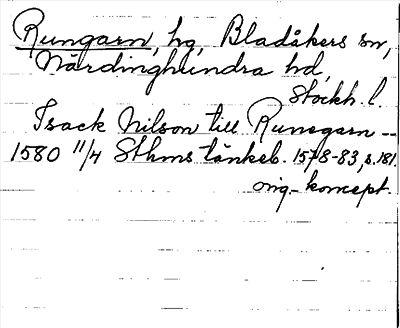 Rungarn, hg, Bladåkers sn,
Närdinghundra hd,
Stockh. l.
Isack Nilson till Runegarn --
1580 11/4 Sthms tänkeb. 1578-83, s. 181.
orig.-koncept.